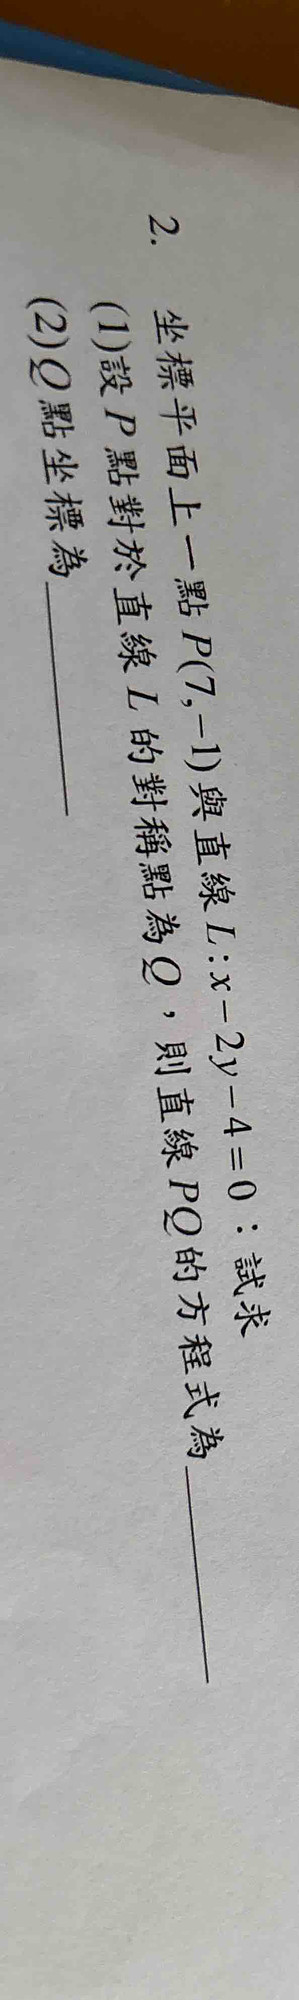 2. 坐標平面上一點P(7,−1)與直線L:x−2y−4=0：試求
(1)設P點對於直線L的對稱點為Q，則直線PQ的方程式為______
(2)Q點坐標為______